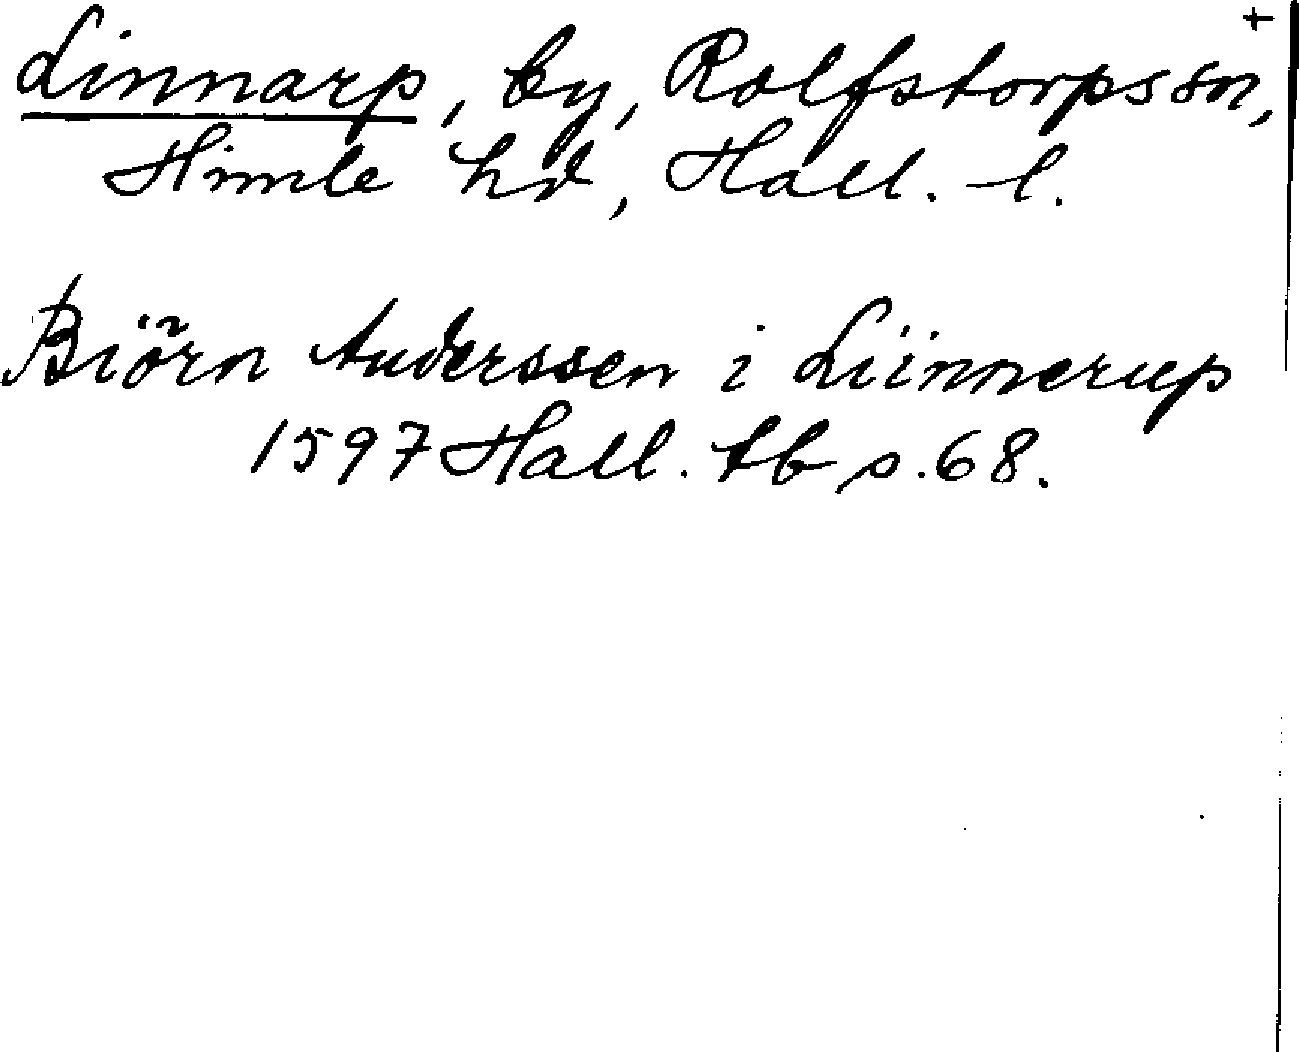 Linnarp, by, Rolfstorps sn, +
Himle hd, Hall. l.
Biörn Anderssen i Liinnerup
1597 Hall. tb s. 68.